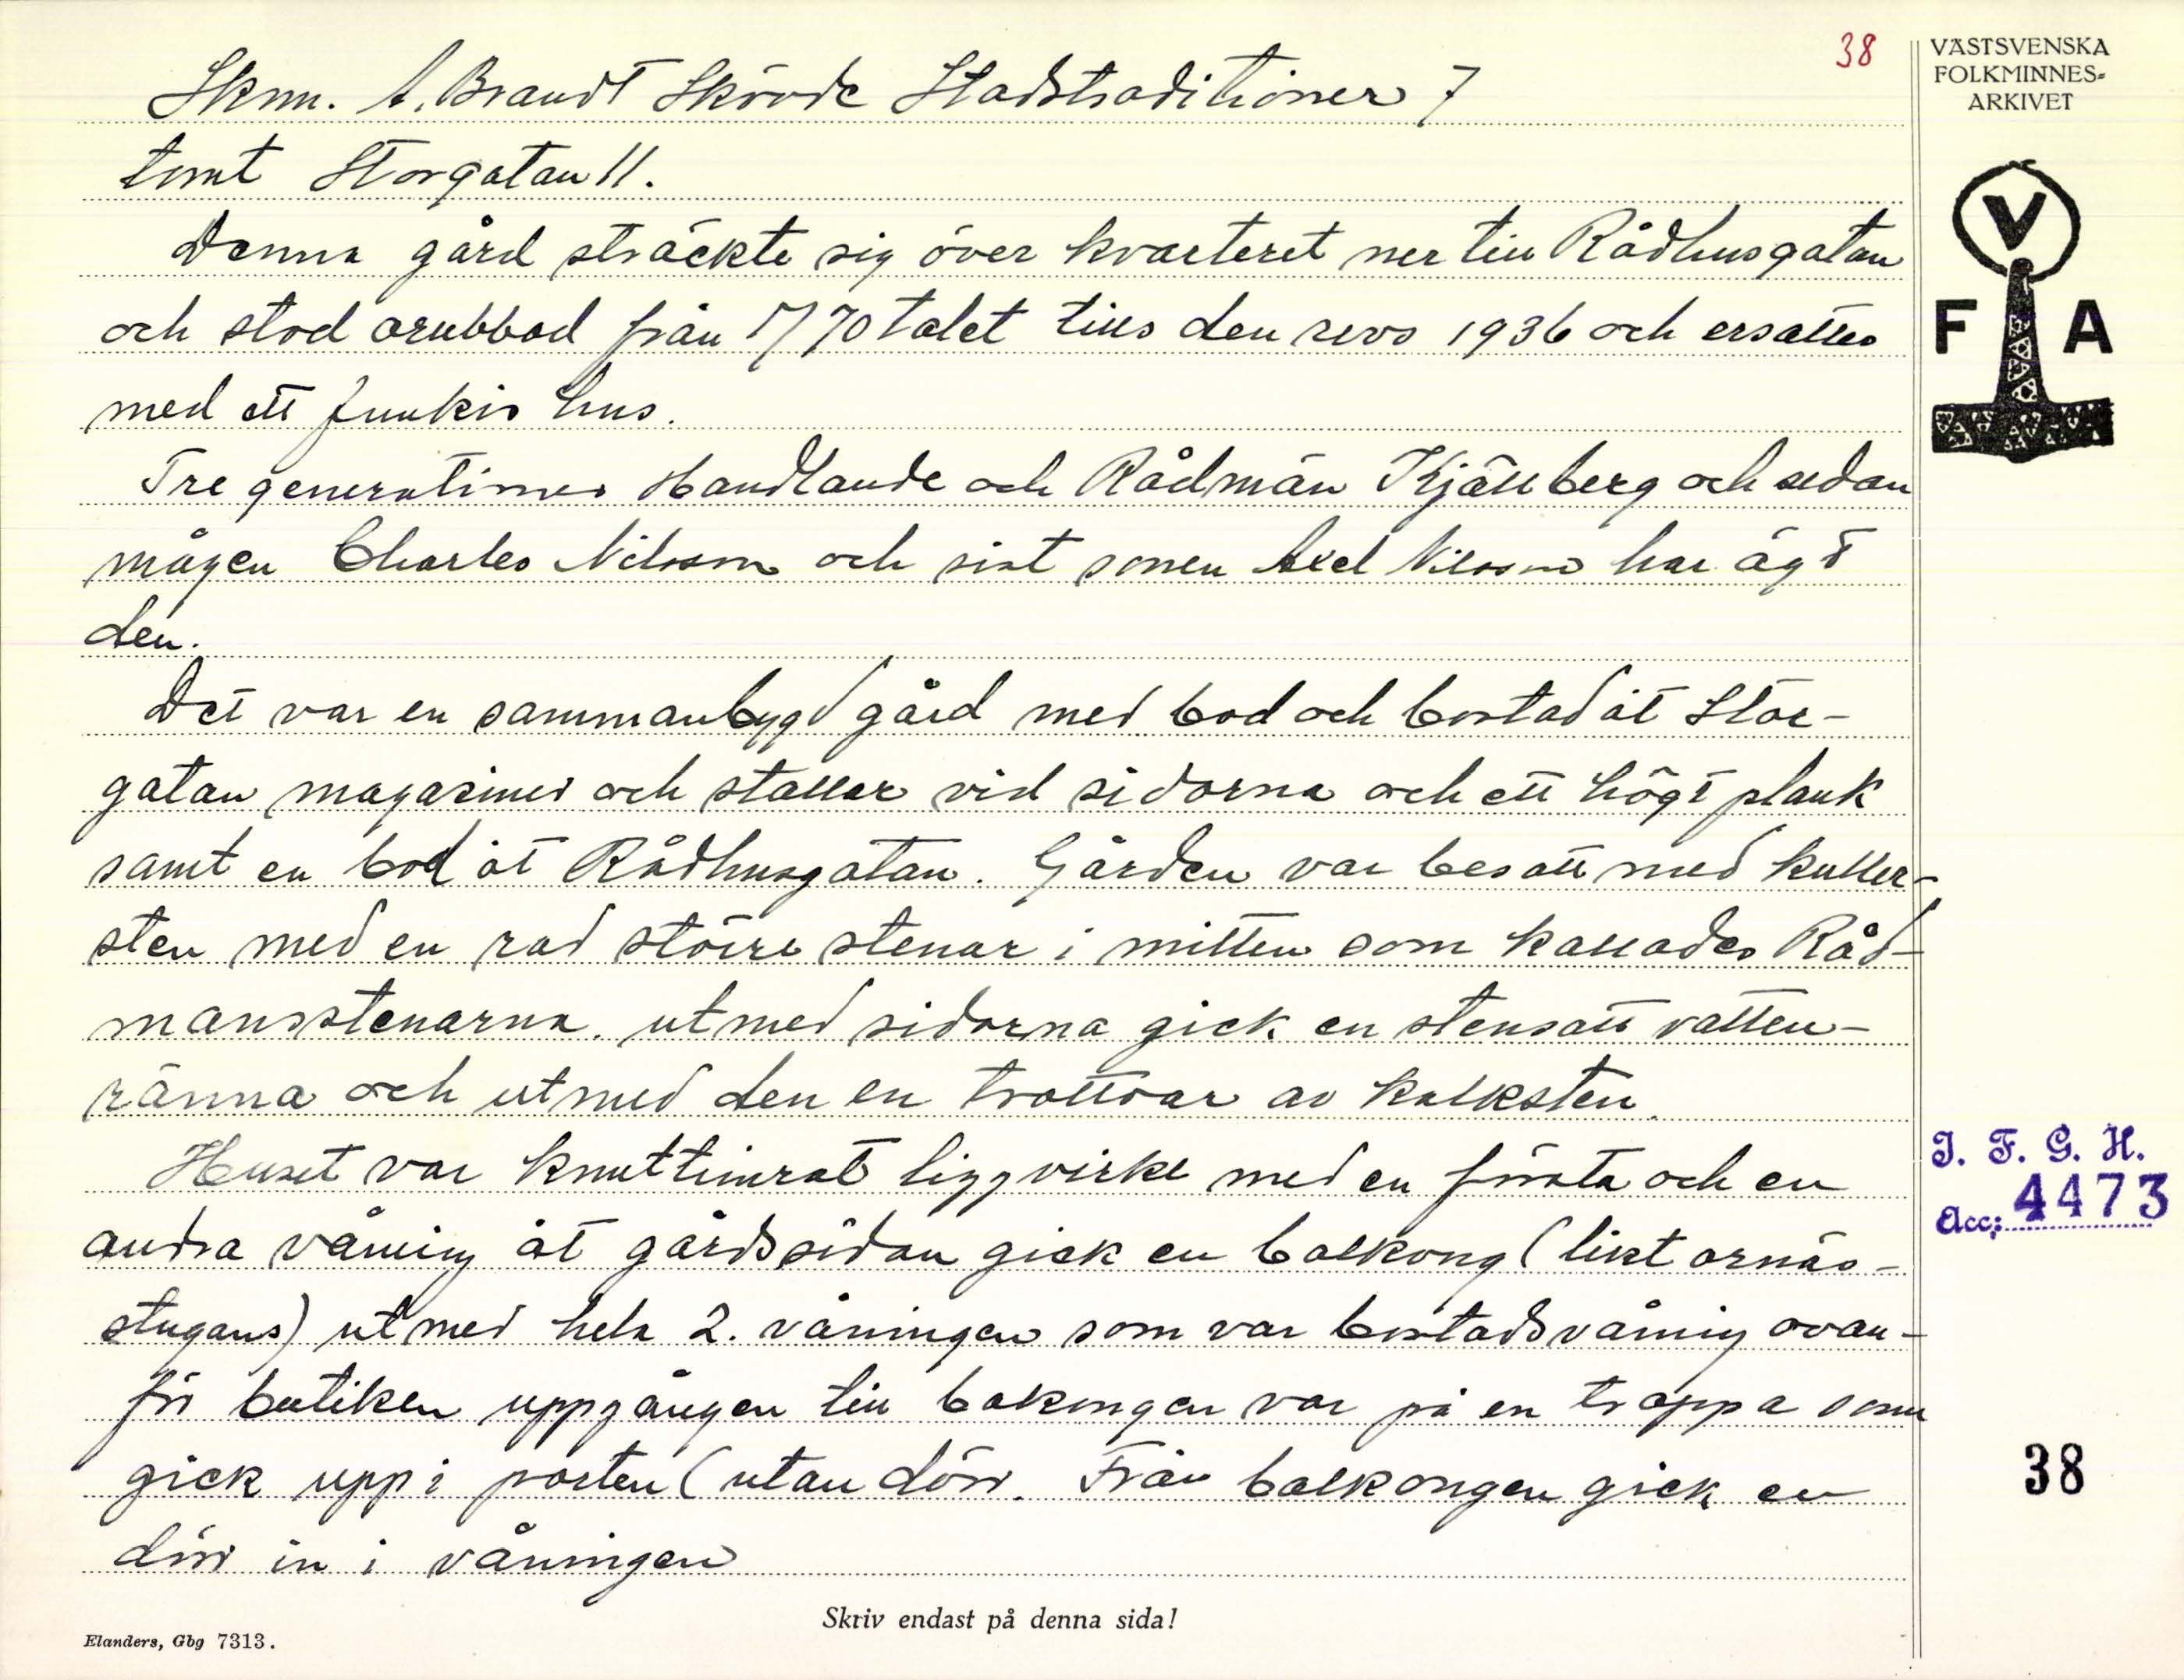 38
VÄSTSVENSKA
FOLKMINNES-
ARKIVET
Sknn. A. Brandt Skövde Stadstraditioner 7
tomt Storgatan 11.
Denna gård sträckte sig över kvarteret ner till Rådhusgatan
och stod orubbad från 1770 talet tills den revs 1936 och ersattes
med ett funkis hus.
Tre generationer Handlande och Rådmän Kjällberg och sedan
mågen Charles Nilsson och sist sonen Axel Nilsson har ägt
den.
Det var en sammanbygd gård med bod och bostad åt Stor-
gatan magasiner och stallar vid sidorna och ett högt plank
samt en bod åt Rådhusgatan. Gården var besatt med kuller-
sten med en rad större stenar i mitten som kallades Råd-
mansstenarna. utmed sidorna gick en stensatt vatten-
ränna och utmed den en trottoar av kalksten.
Huset var knuttimrat liggvirke med en första och en
andra våning åt gårdssidan gick en balkong (likt ornäs-
stugans) utmed hela 2. våningen som var bostadsvåning ovan-
för butiken uppgången till bakongen var på en trappa som
gick upp i porten (utan dörr. Från balkongen gick en
dörr in i våningen
V
F A
I. F. G. H.
Acc; 4473
38
Skriv endast på denna sida!
Elanders, Gbg 7313.